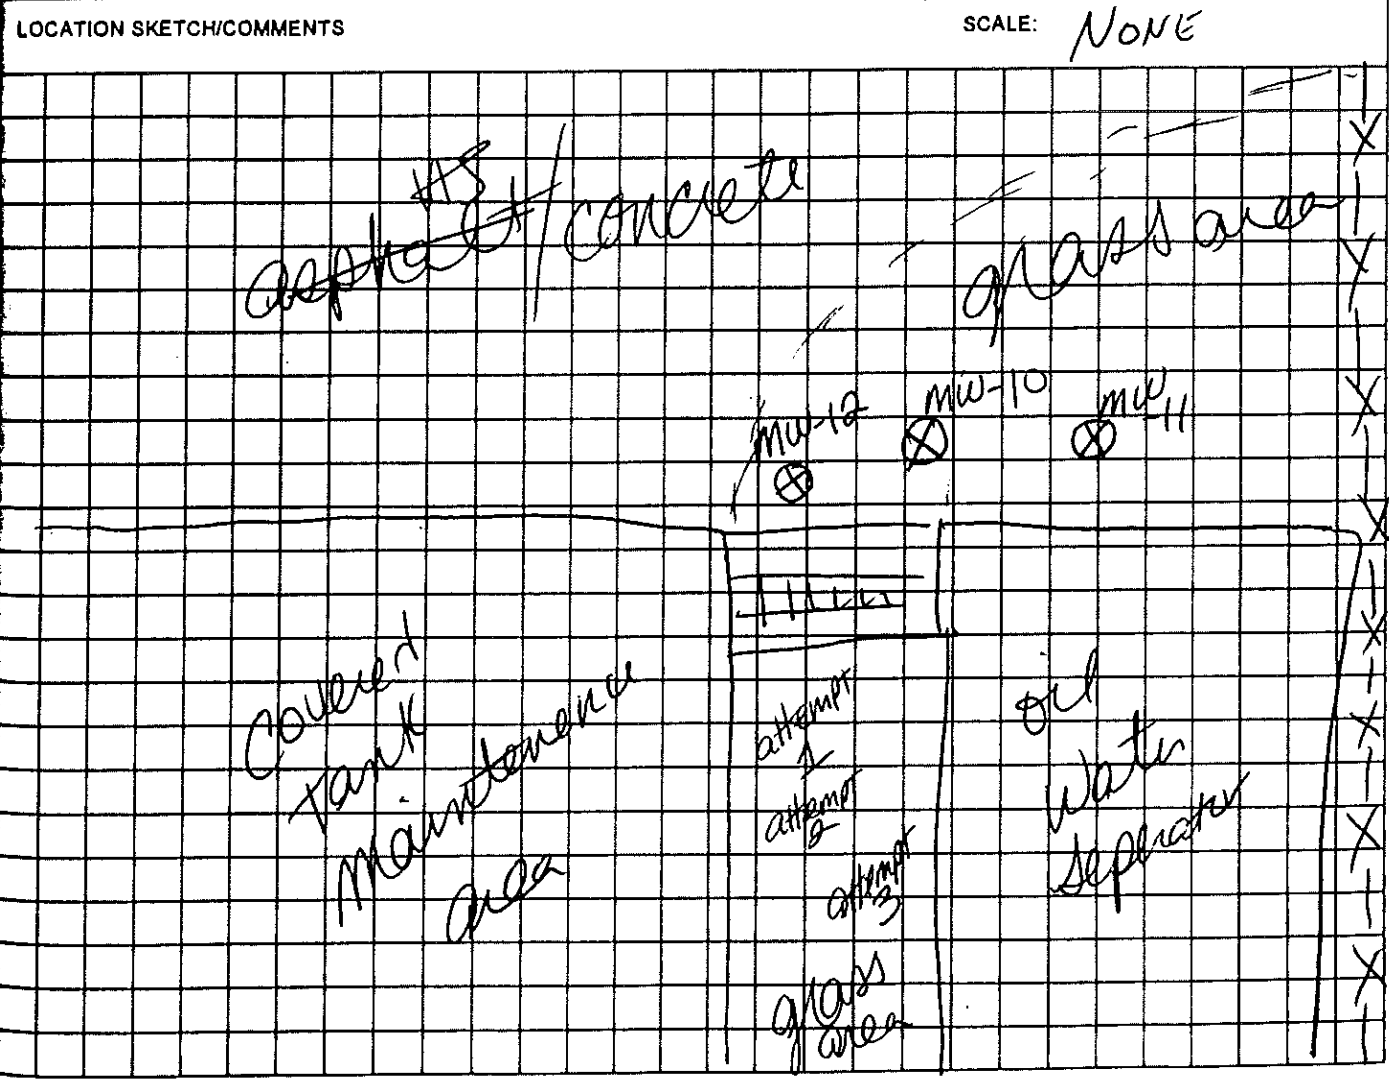 LOCATION SKETCH/COMMENTS
SCALE: NONE
asphalt/concrete
grass area
MW-12
MW-10
MW-11
Covered
Tank
Maintenence
area
attempt
1
attempt
2
attempt
3
grass
area
oil
Water
Seperator